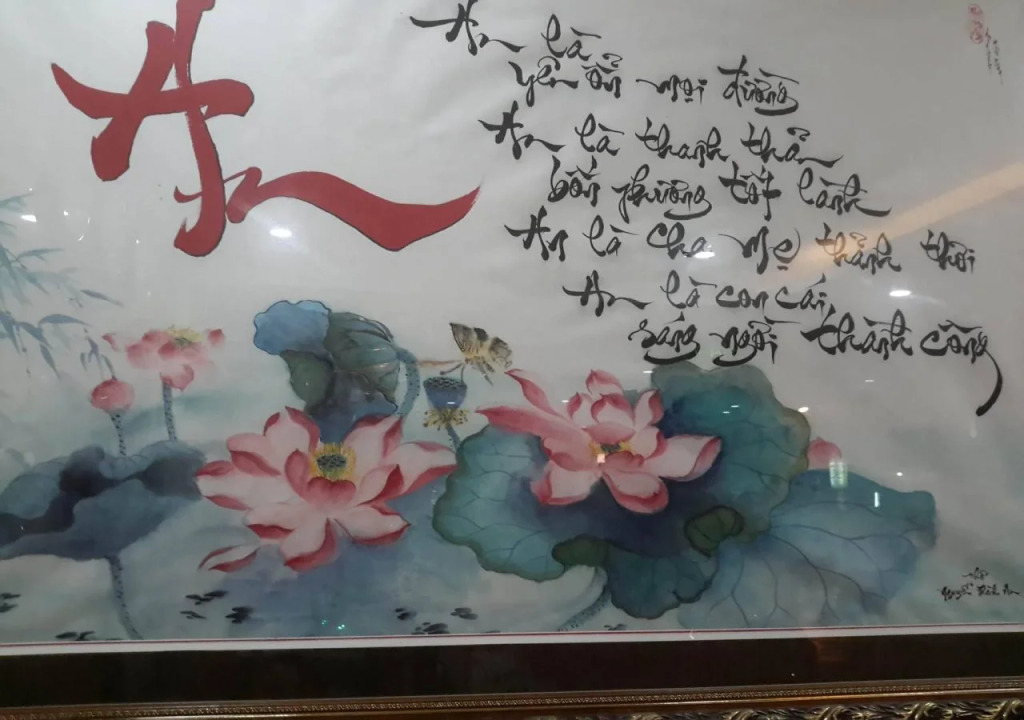 An
An là
yên ổn mọi đường
An là thanh thản
bốn phương tốt lành
An là cha Mẹ thảnh thơi
An là con cái,
sáng ngời thành công